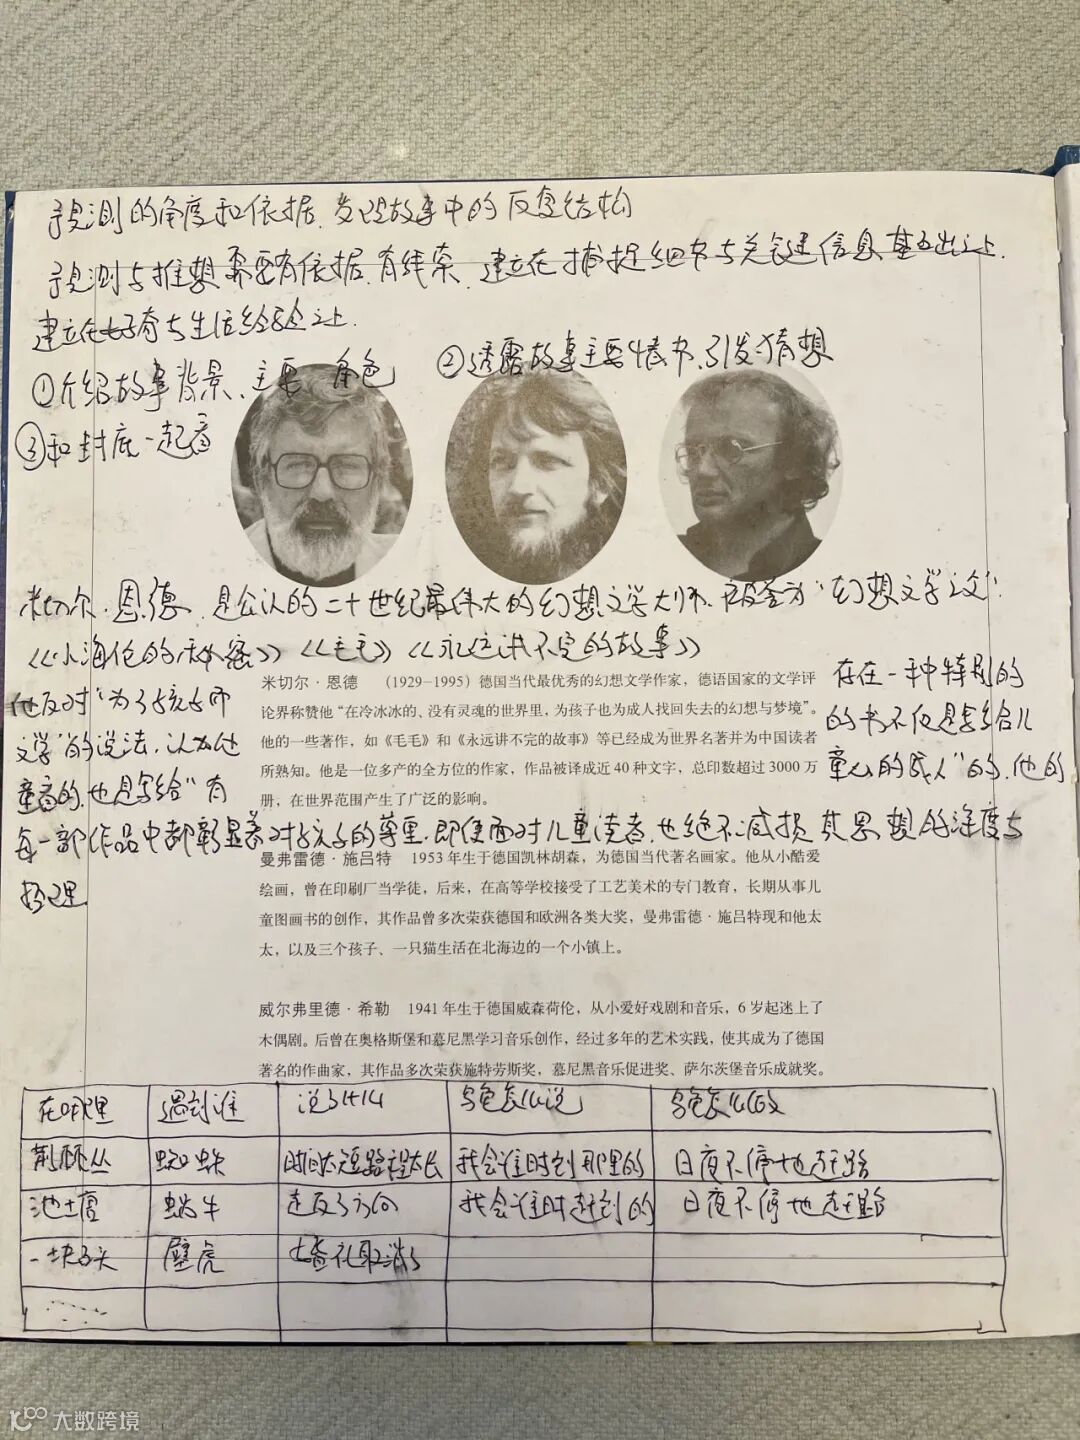 预测的角度和依据、发现故事中的反复结构
预测与推想需要有依据、有线索、建立在捕捉细节与关键信息基础之上、
建立在好奇与生活经验之上.
①介绍故事背景、主要角色
②透露故事主要情节、引发猜想
③和封底一起看
米切尔·恩德、是公认的二十世纪最伟大的幻想文学大师、被誉为“幻想文学之父”.
《小海伦的秘密》《毛毛》《永远讲不完的故事》
米切尔·恩德 (1929-1995)德国当代最优秀的幻想文学作家,德语国家的文学评
论界称赞他“在冷冰冰的、没有灵魂的世界里,为孩子也为成人找回失去的幻想与梦境”。
他的一些著作,如《毛毛》和《永远讲不完的故事》等已经成为世界名著并为中国读者
所熟知。他是一位多产的全方位的作家,作品被译成近40种文字,总印数超过3000万
册,在世界范围产生了广泛的影响。
他反对“为了孩子而 存在一种特别的
文学”的说法,认为他 的书不仅是写给儿
童看的,也是写给“有 童心的成人”的,他的
每一部作品中都彰显着对孩子的尊重,即使面对儿童读者,也绝不减损其思想的深度与
哲理
曼弗雷德·施吕特 1953年生于德国凯林胡森,为德国当代著名画家。他从小酷爱
绘画,曾在印刷厂当学徒,后来,在高等学校接受了工艺美术的专门教育,长期从事儿
童图画书的创作,其作品曾多次荣获德国和欧洲各类大奖,曼弗雷德·施吕特现和他太
太,以及三个孩子、一只猫生活在北海边的一个小镇上。
威尔弗里德·希勒 1941年生于德国威森荷伦,从小爱好戏剧和音乐,6岁起迷上了
木偶剧。后曾在奥格斯堡和慕尼黑学习音乐创作,经过多年的艺术实践,使其成为了德国
著名的作曲家,其作品多次荣获施特劳斯奖,慕尼黑音乐促进奖、萨尔茨堡音乐成就奖。
在哪里 遇到谁 说了什么 乌龟怎么说 乌龟怎么做
荆棘丛 蜘蛛 时间太短路程太长 我会准时到那里的 日夜不停地赶路
池塘 蜗牛 走反了方向 我会准时赶到的 日夜不停地赶路
一块石头 壁虎 婚礼取消了
……
大数跨境